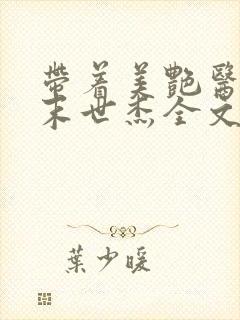 帶着美艷醫
末世杰全文
葉少暖